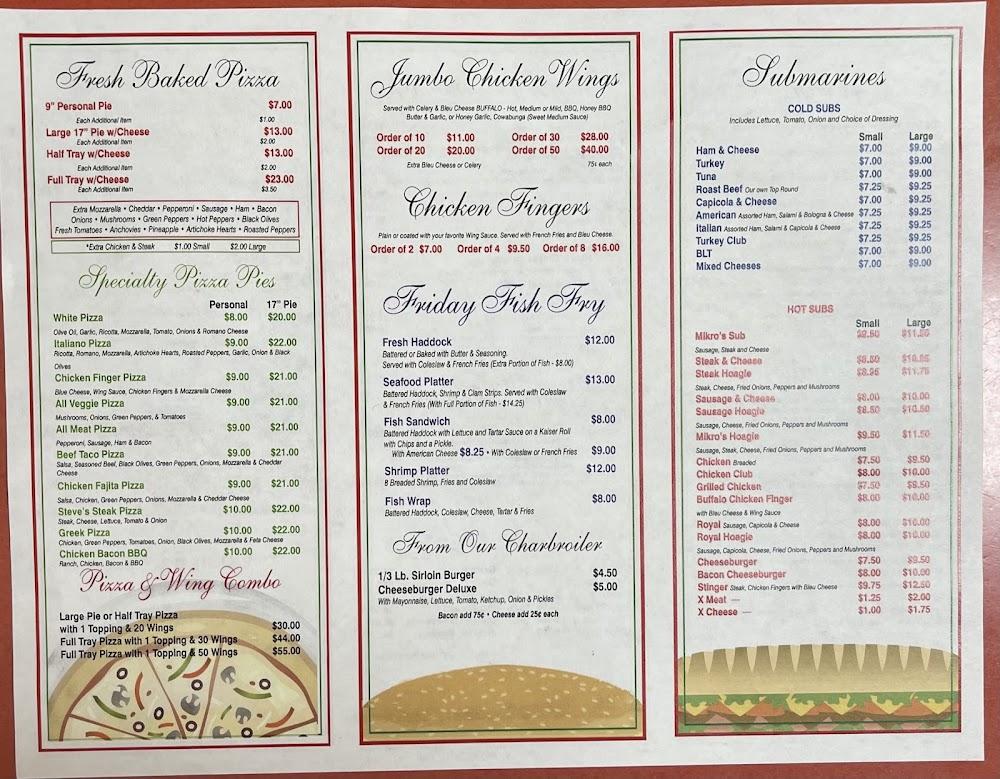 Fresh Baked Pizza
9" Personal Pie $7.00
Each Additional Item $1.00
Large 17" Pie w/Cheese $13.00
Each Additional Item $2.00
Half Tray w/Cheese $13.00
Each Additional Item $2.00
Full Tray w/Cheese $23.00
Each Additional Item $3.50
Extra Mozzarella • Cheddar • Pepperoni • Sausage • Ham • Bacon
Onions • Mushrooms • Green Peppers • Hot Peppers • Black Olives
Fresh Tomatoes • Anchovies • Pineapple • Artichoke Hearts • Roasted Peppers
*Extra Chicken & Steak $1.00 Small $2.00 Large
Specialty Pizza Pies
Personal 17" Pie
White Pizza $8.00 $20.00
Olive Oil, Garlic, Ricotta, Mozzarella, Tomato, Onions & Romano Cheese
Italiano Pizza $9.00 $22.00
Ricotta, Romano, Mozzarella, Artichoke Hearts, Roasted Peppers, Garlic, Onion & Black
Olives
Chicken Finger Pizza $9.00 $21.00
Blue Cheese, Wing Sauce, Chicken Fingers & Mozzarella Cheese
All Veggie Pizza $9.00 $21.00
Mushrooms, Onions, Green Peppers, & Tomatoes
All Meat Pizza $9.00 $21.00
Pepperoni, Sausage, Ham & Bacon
Beef Taco Pizza $9.00 $21.00
Salsa, Seasoned Beef, Black Olives, Green Peppers, Onions, Mozzarella & Cheddar
Cheese
Chicken Fajita Pizza $9.00 $21.00
Salsa, Chicken, Green Peppers, Onions, Mozzarella & Cheddar Cheese
Steve's Steak Pizza $10.00 $22.00
Steak, Cheese, Lettuce, Tomato & Onion
Greek Pizza $10.00 $22.00
Chicken, Green Peppers, Tomatoes, Onion, Black Olives, Mozzarella & Feta Cheese
Chicken Bacon BBQ $10.00 $22.00
Ranch, Chicken, Bacon & BBQ
Pizza & Wing Combo
Large Pie or Half Tray Pizza
with 1 Topping & 20 Wings $30.00
Full Tray Pizza with 1 Topping & 30 Wings $44.00
Full Tray Pizza with 1 Topping & 50 Wings $55.00
Jumbo Chicken Wings
Served with Celery & Bleu Cheese BUFFALO - Hot, Medium or Mild, BBQ, Honey BBQ
Butter & Garlic, or Honey Garlic, Cowabunga (Sweet Medium Sauce)
Order of 10 $11.00 Order of 30 $28.00
Order of 20 $20.00 Order of 50 $40.00
Extra Bleu Cheese or Celery 75¢ each
Chicken Fingers
Plain or coated with your favorite Wing Sauce. Served with French Fries and Bleu Cheese.
Order of 2 $7.00 Order of 4 $9.50 Order of 8 $16.00
Friday Fish Fry
Fresh Haddock $12.00
Battered or Baked with Butter & Seasoning.
Served with Coleslaw & French Fries (Extra Portion of Fish - $8.00)
Seafood Platter $13.00
Battered Haddock, Shrimp & Clam Strips. Served with Coleslaw
& French Fries (With Full Portion of Fish - $14.25)
Fish Sandwich $8.00
Battered Haddock with Lettuce and Tartar Sauce on a Kaiser Roll
with Chips and a Pickle.
With American Cheese $8.25 • With Coleslaw or French Fries $9.00
Shrimp Platter $12.00
8 Breaded Shrimp, Fries and Coleslaw
Fish Wrap $8.00
Battered Haddock, Coleslaw, Cheese, Tartar & Fries
From Our Charbroiler
1/3 Lb. Sirloin Burger $4.50
Cheeseburger Deluxe $5.00
With Mayonnaise, Lettuce, Tomato, Ketchup, Onion & Pickles
Bacon add 75¢ • Cheese add 25¢ each
Submarines
COLD SUBS
Includes Lettuce, Tomato, Onion and Choice of Dressing
Small Large
Ham & Cheese $7.00 $9.00
Turkey $7.00 $9.00
Tuna $7.00 $9.00
Roast Beef Our own Top Round $7.25 $9.25
Capicola & Cheese $7.00 $9.00
American Assorted Ham, Salami & Bologna & Cheese $7.25 $9.25
Italian Assorted Ham, Salami & Capicola & Cheese $7.25 $9.25
Turkey Club $7.25 $9.25
BLT $7.00 $9.00
Mixed Cheeses $7.00 $9.00
HOT SUBS
Small Large
Mikro's Sub $11.50
Sausage, Steak and Cheese
Steak & Cheese
Steak Hoagie $11.75
Steak, Cheese, Fried Onions, Peppers and Mushrooms
Sausage & Cheese $8.00 $10.00
Sausage Hoagie $8.50 $10.50
Sausage, Cheese, Fried Onions, Peppers and Mushrooms
Mikro's Hoagie $9.50 $11.50
Sausage, Steak, Cheese, Fried Onions, Peppers and Mushrooms
Chicken Breaded $7.50 $9.50
Chicken Club $8.00 $10.00
Grilled Chicken $7.50 $9.50
Buffalo Chicken Finger $8.00 $10.00
with Bleu Cheese & Wing Sauce
Royal Sausage, Capicola & Cheese $8.00 $10.00
Royal Hoagie $8.00 $10.00
Sausage, Capicola, Cheese, Fried Onions, Peppers and Mushrooms
Cheeseburger $7.50 $9.50
Bacon Cheeseburger $8.00 $10.00
Stinger Steak, Chicken Fingers with Bleu Cheese $9.75 $12.50
X Meat — $1.25 $2.00
X Cheese — $1.00 $1.75